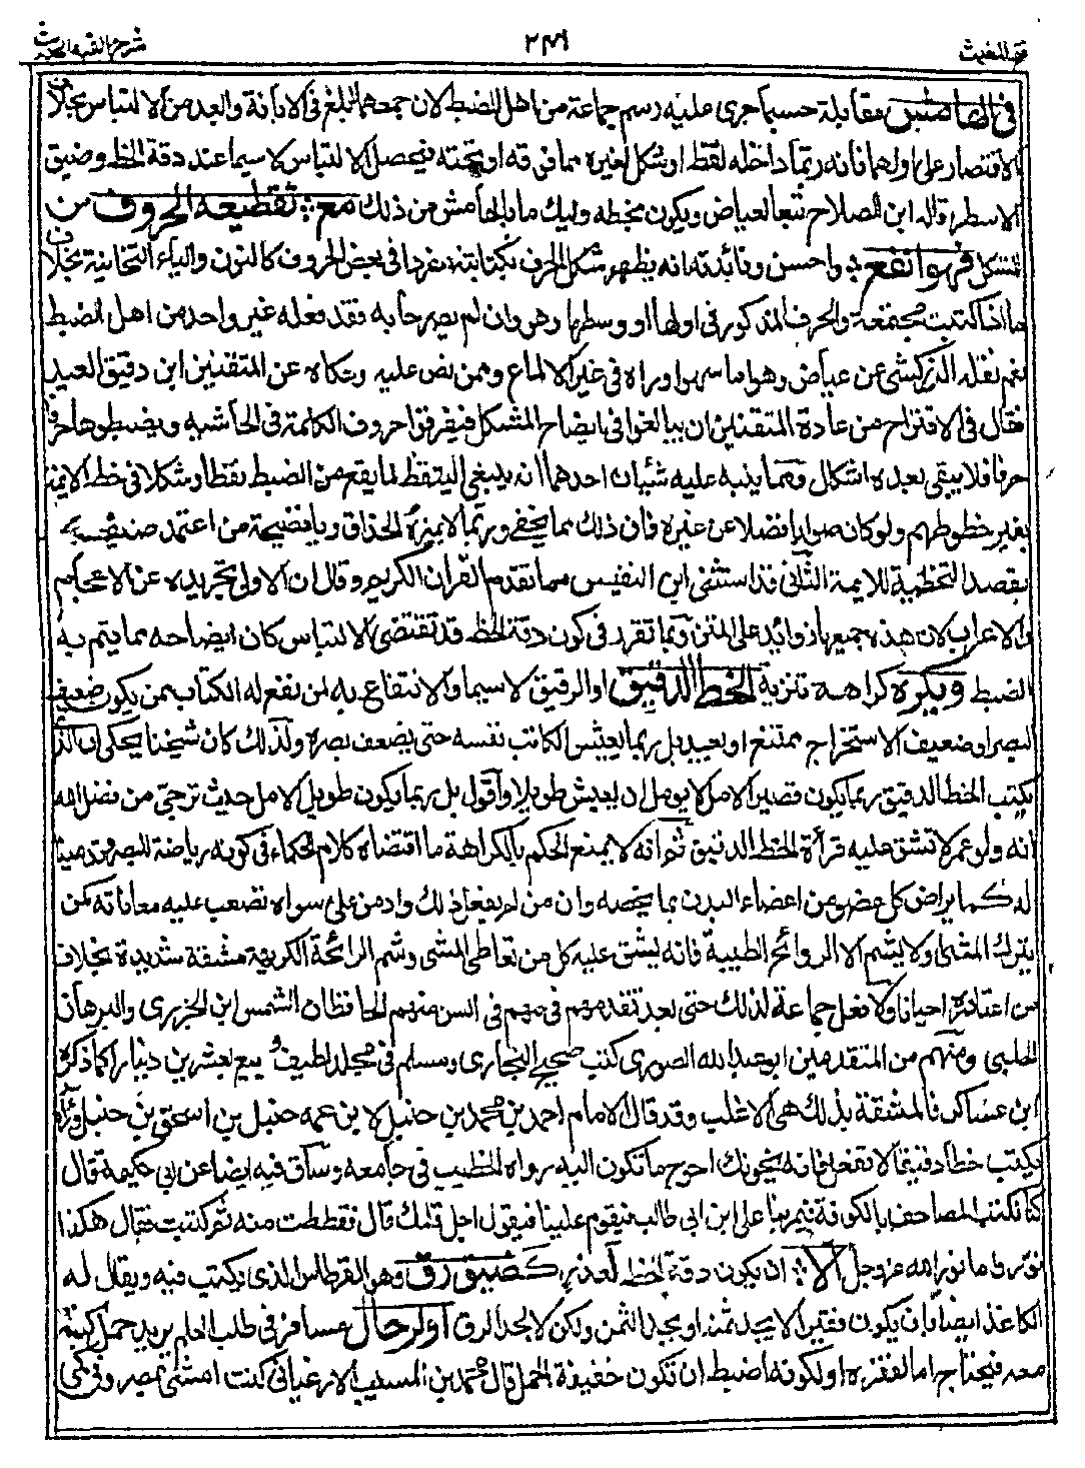 فتح المغيث ٢٣٩ شرح الفية الحديث
في الهامش مقابلة حسبما جرى عليه رسم جماعة من اهل الضبط لان جمعهما ابلغ في الابانة والبعد من الالتباس بخلاف
الاقتصار على اولهما فانه ربما داخله نقط او شكل لغيره مما فوقه او تحته فيحصل الالتباس لا سيما عند دقة الخط وضيق
الاسطر قاله ابن الصلاح تبعا لعياض ويكون بخطه وليك ما بالهامش من ذلك مع تقطيعه الحروف من
المشكل فهو انفع واحسن وفائدته انه يظهر شكل الحرف بكتابته مفردا في بعض الحروف كالنون والياء التحتانية بخلاف
ما اذا كتبت مجتمعة والحرف المذكور في اولها او وسطها وهو وان لم يصرحا به فقد فعله غير واحد من اهل الضبط
نعم نقله الزركشي عن عياض وهو اما سهو او راه في غير الالماع وممن نص عليه وحكاه عن المتقنين ابن دقيق العيد
فقال في الاقتراح من عادة المتقنين ان يبالغوا في ايضاح المشكل فيفرقوا حروف الكلمة في الحاشية ويضبطوها حرفا
حرفا فلا يبقى بعده اشكال ومما ينبه عليه شيئان احدهما انه ينبغي التيقظ لما يقع من الضبط نقطا وشكلا في خط الايمة
بغير خطوطهم ولو كان صوابا فضلا عن غيره فان ذلك مما يخفى وربما لا يميزه الحذاق ويا فضيحة من اعتمد صنيعه
بقصد التخطية للايمة الثاني قد استثنى ابن النفيس مما تقدم القران الكريم وقال ان الاولى تجريده عن الاعجام
والاعراب لان هذه جميعها زوائد على المتن وبما تقرر في كون دقة الخط قد تقتضي الالتباس كان ايضاحه مما يتم به
الضبط ويكره كراهة تنزيه الخط الدقيق او الرقيق لا سيما والانتفاع به لمن نفع له الكتاب بمن يكون ضعيف
البصر او ضعيف الاستخراج ممتنع او بعيد بل ربما يعيش الكاتب نفسه حتى يضعف بصره ولذلك كان شيخنا يحكي ان الذي
يكتب الخط الدقيق ربما يكون قصير الامل لا يومل ان يعيش طويلا واقول بل ربما يكون طويل الامل حيث ترجى من فضل الله
انه ولو عمر لا تشق عليه قرأة الخط الدقيق ثم انه لا يمنع الحكم بالكراهة ما اقتضاه كلام الحكماء في كونه رياضة للبصر وتدميثا
له كما يراض كل عضو من اعضاء البدن بما يخصه وان من لم يفعل ذلك وادمن على سواه تصعب عليه معاناته كمن
يترك المشي ولا يشم الا الروائح الطيبة فانه يشق عليه كل من تعاطي المشي وشم الرائحة الكريهة مشقة شديدة بخلاف
من اعتاده احيانا ولا فعل جماعة لذلك حتى بعد تقدمهم في السن منهم الحافظان الشمس ابن الجزري والبرهان
الحلبي ومنهم من المتقدمين ابو عبد الله الصوري كتب صحيحي البخاري ومسلم في مجلد لطيف وبيع بعشرين دينارا كما ذكره
ابن عساكر فالمشقة بذلك هي الاغلب وقد قال الامام احمد بن محمد بن حنبل لابن عمه حنبل بن اسحق بن حنبل ورأه
يكتب خطا دقيقا لا تفعل فانه يخونك احوج ما تكون اليه رواه الخطيب في جامعه وساق فيه ايضا عن ابي حكيمة قال
كنا نكتب المصاحف بالكوفة فيمر بنا علي ابن ابي طالب فيقوم علينا فيقول اجل قلمك قال فقططت منه ثم كتبت فقال هكذا
نوروا ما نور الله عز وجل الا ان يكون دقة الخط لعذر كضيق رق وهو القرطاس الذي يكتب فيه ويقال له
الكاغذ ايضا بان يكون فقيرا لا يجد ثمنه او يجد الثمن ولكن لا يجد الرق او لرحال مسافر في طلب العلم يريد حمل كتبه
معه فيحتاج اما لفقره او لكونه اضبط ان تكون خفيفة الحمل قال محمد بن المسيب الارغياني كنت امشي بمصر وفي كمي